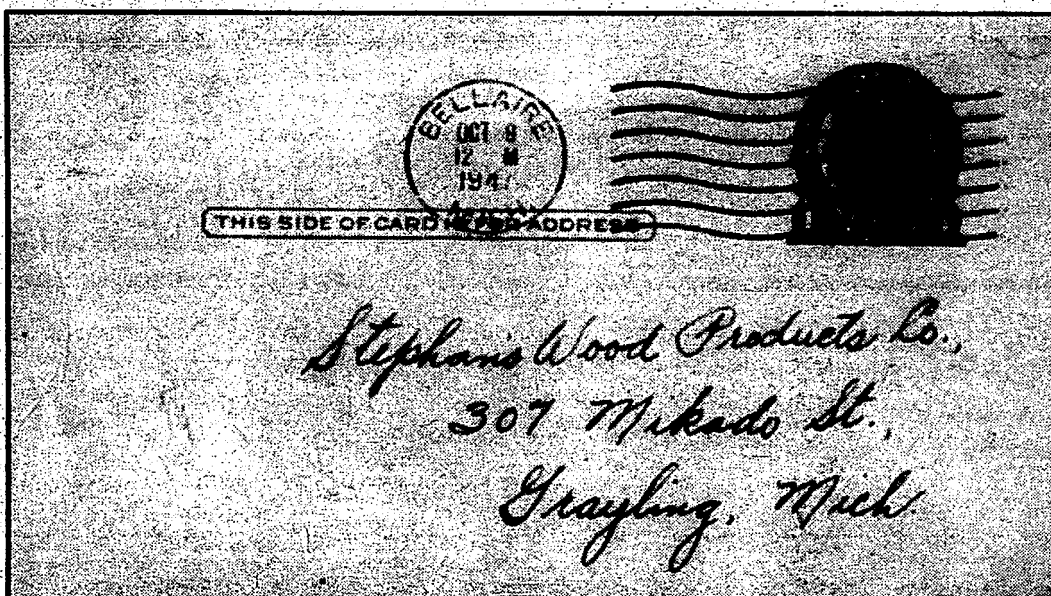 BELLAIRE
OCT 9
12 M
194
THIS SIDE OF CARD IS FOR ADDRESS
Stephan's Wood Products Co.,
307 Mikado St.,
Grayling, Mich.